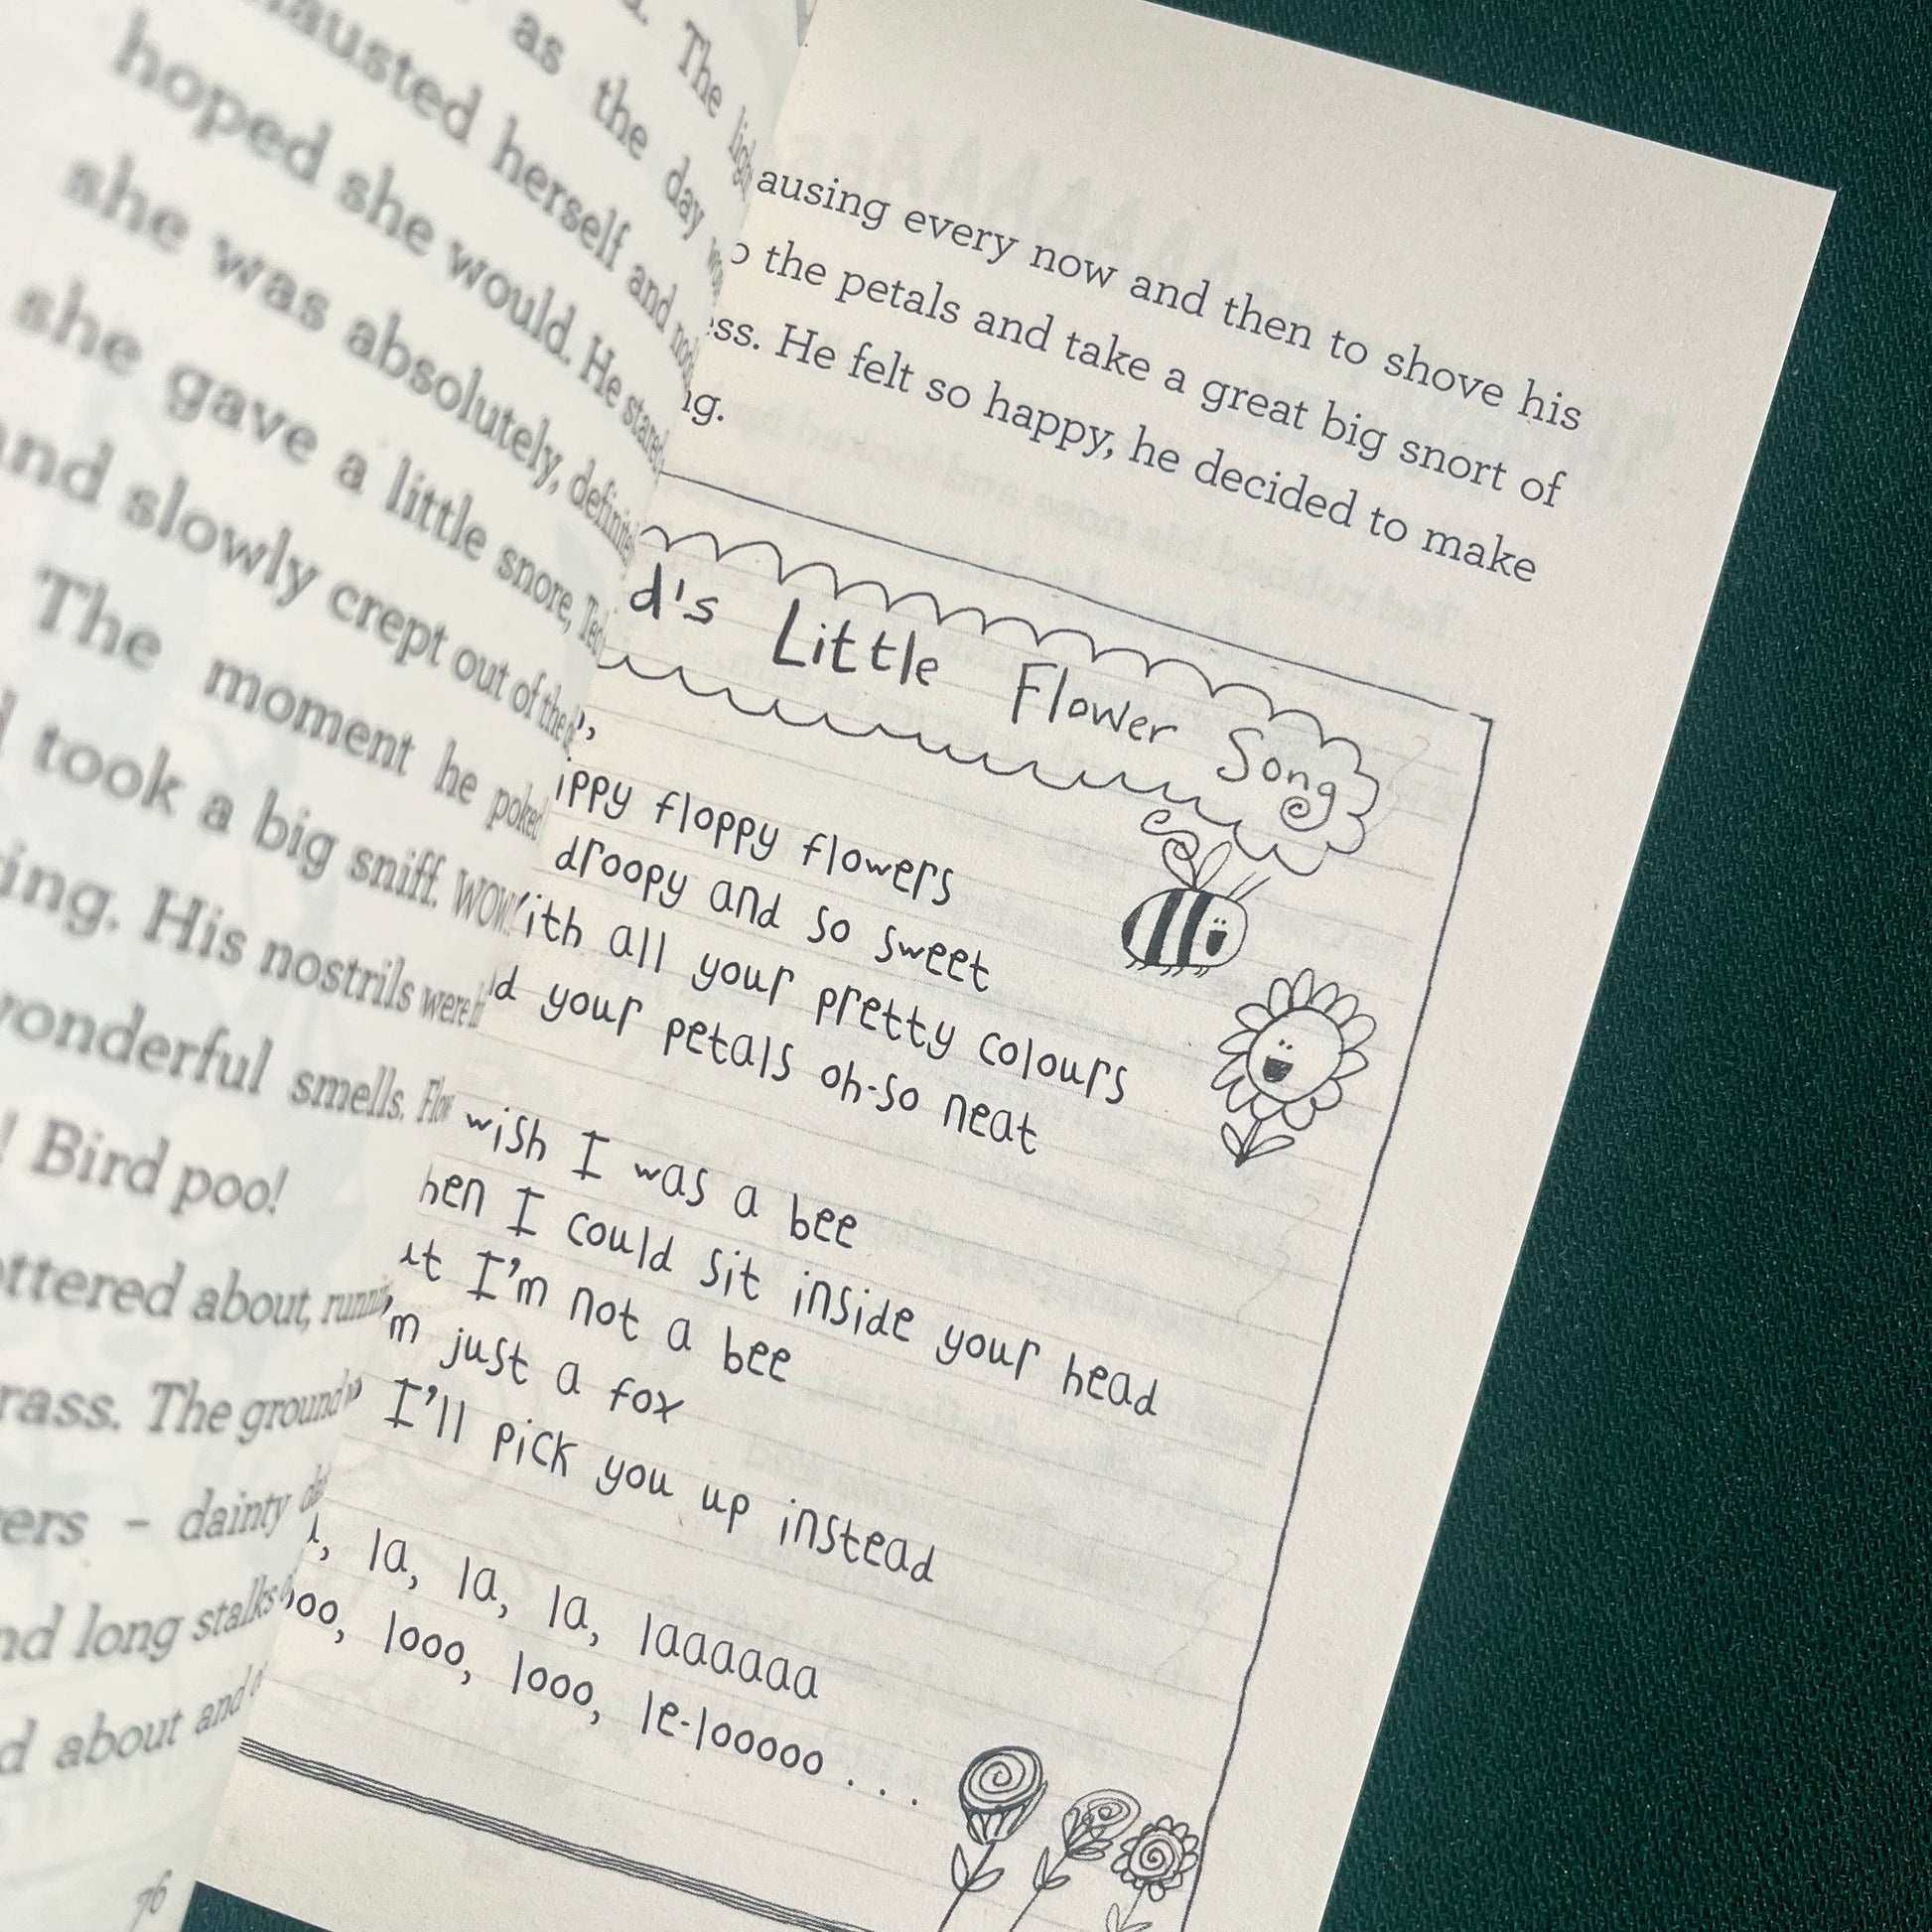 as the day
herself and
hoped she would. He
she was absolutely,
she gave a little snore,
slowly crept out of the
The moment he
took a big sniff. WOW!
His nostrils were
smells.
! Bird poo!
about,
The ground
– dainty
long stalks
about and
76
every now and then to shove his
the petals and take a great big snort of
He felt so happy, he decided to make
Little Flower Song
floppy flowers
droopy and so sweet
all your pretty colours
your petals oh-so neat
wish I was a bee
I could sit inside your head
I'm not a bee
just a fox
I'll pick you up instead
la, la, la, laaaaaa
looo, looo, le-looooo . . .